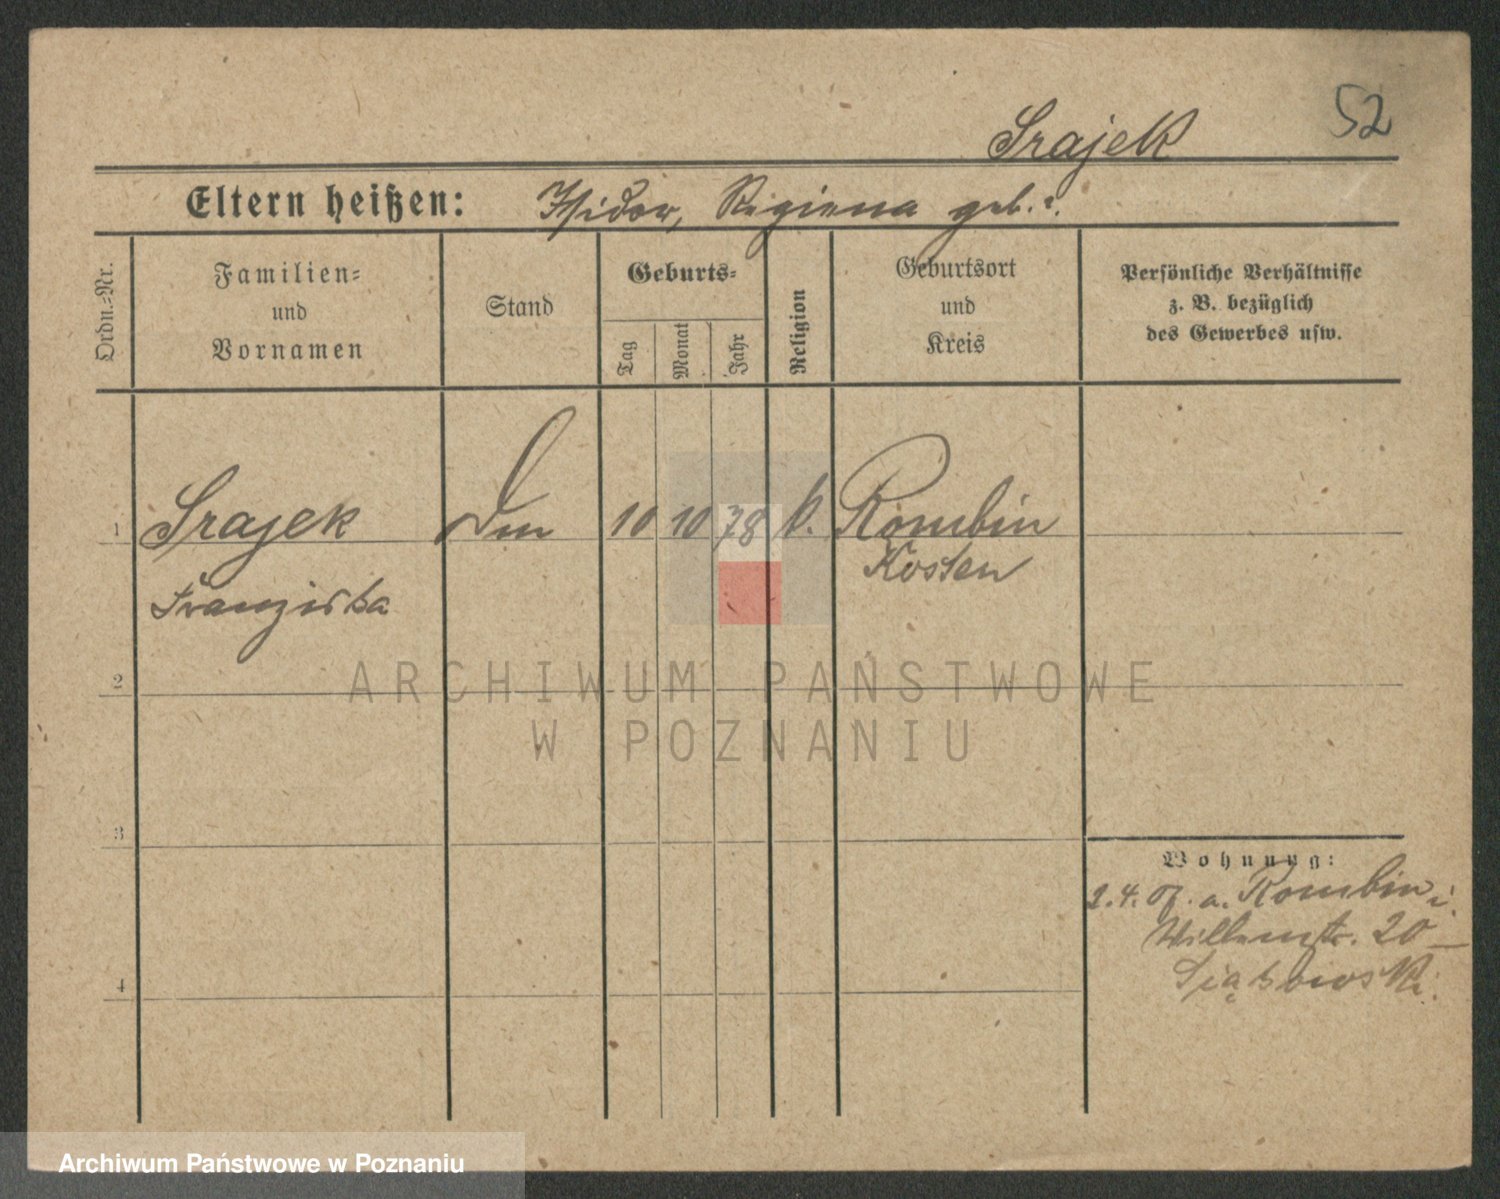 52
Srajek
Eltern heißen: Isidor, Regiena geb. ?.
Ordn.=Nr.
Familien=
und
Vornamen
Stand
Geburts=
Tag
Monat
Jahr
Religion
Geburtsort
und
Kreis
Persönliche Verhältnisse
z. B. bezüglich
des Gewerbes usw.
1 Srajek 10 10 78 k. Rombin
Kosten
Franziska
2
ARCHIWUM PAŃSTWOWE
W POZNANIU
3
Wohnung:
2.4.07. a. Rombin
20
4
Archiwum Państwowe w Poznaniu